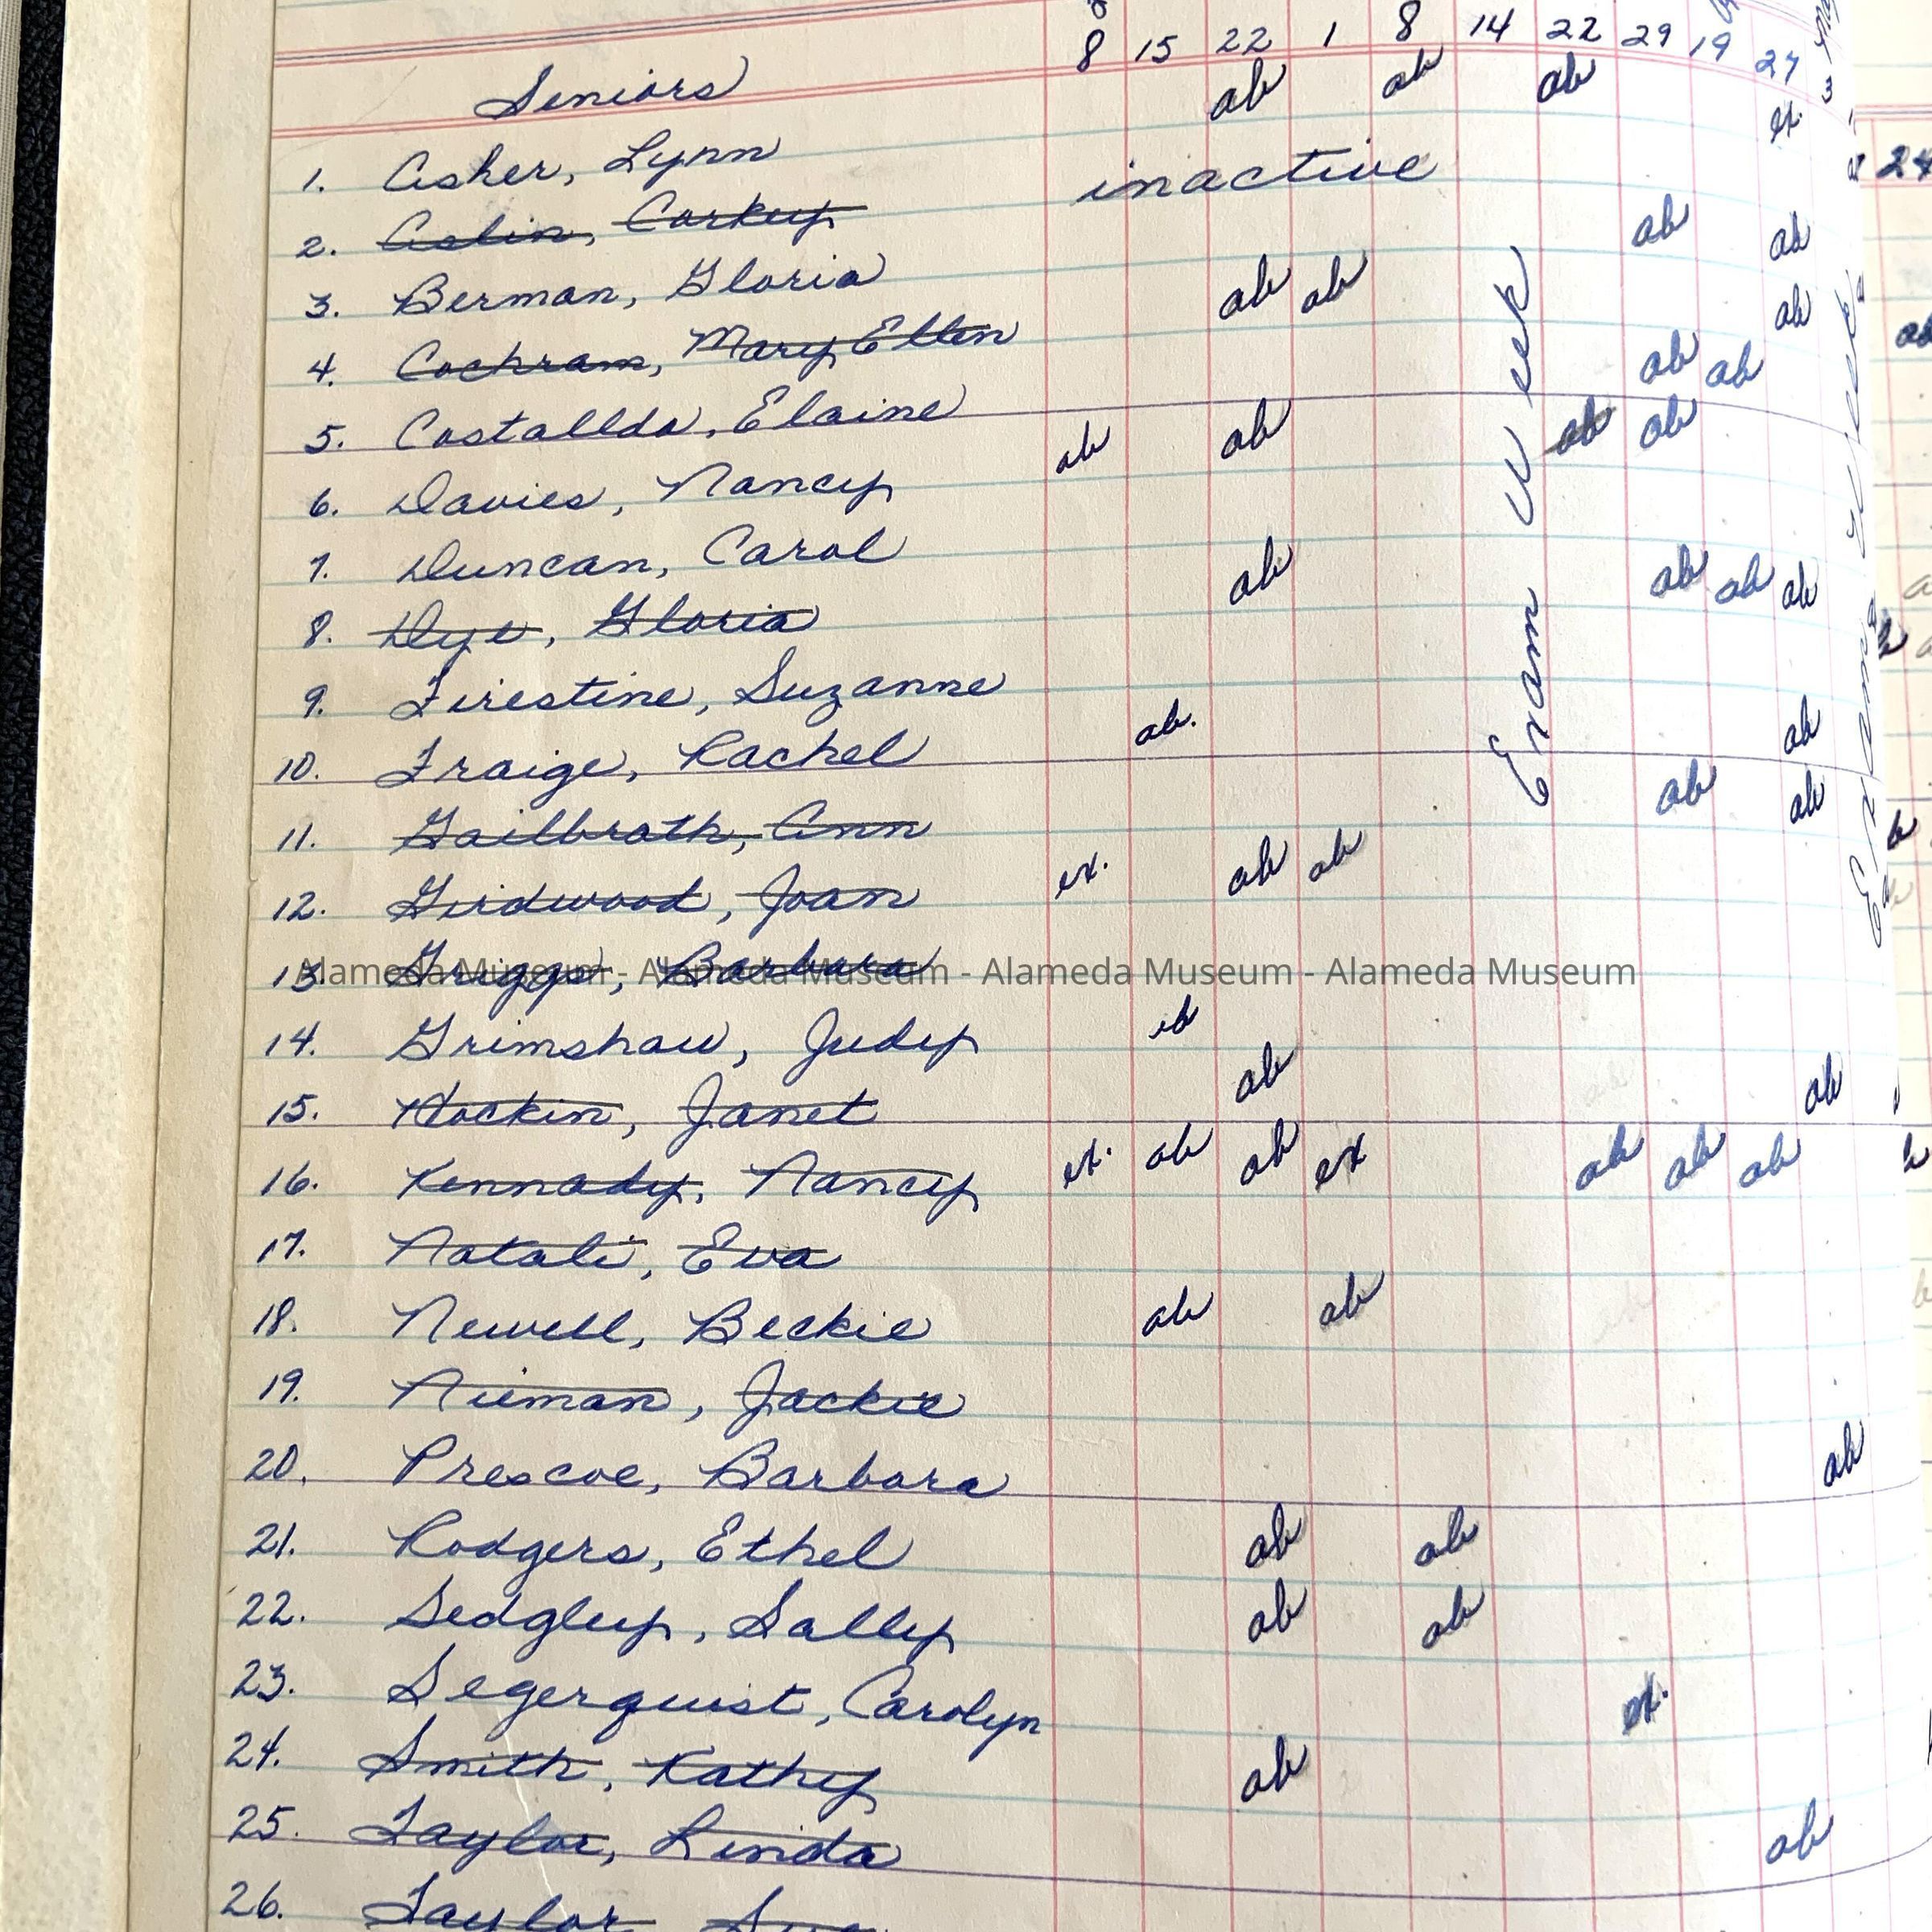 8 15 22 1 8 14 22 29 19 27 3
Seniors ab ab ab
1. Asher, Lynn ex.
2. Aslin, Corkey inactive
3. Berman, Gloria ab ab ab ab
4. Cochram, Mary Ellen ab
5. Costalldo, Elaine ab ab ab ab
6. Davies, Nancy ab ab
7. Duncan, Carol
8. Dye, Gloria ab ab ab ab
9. Firestine, Suzanne
10. Fraige, Rachel ab. ab
11. Gailbrath, Ann ab ab
12. Girdwood, Joan ex. ab ab
13. Griggs, Barbara
Alameda Museum - Alameda Museum - Alameda Museum - Alameda Museum
14. Grimshaw, Judy
15. Hockin, Janet ab ab
16. Kennady, Nancy ex. ab ab ex ab ab ab
17. Natali, Eva
18. Newell, Beckie ab ab
19. Nieman, Jackie
20. Prescoe, Barbara ab
21. Rodgers, Ethel ab ab
22. Sedgley, Sally ab ab
23. Segerquist, Carolyn ex.
24. Smith, Kathy ab
25. Taylor, Linda ab
26. Taylor, Sue
Exam Week
Exam Week
24